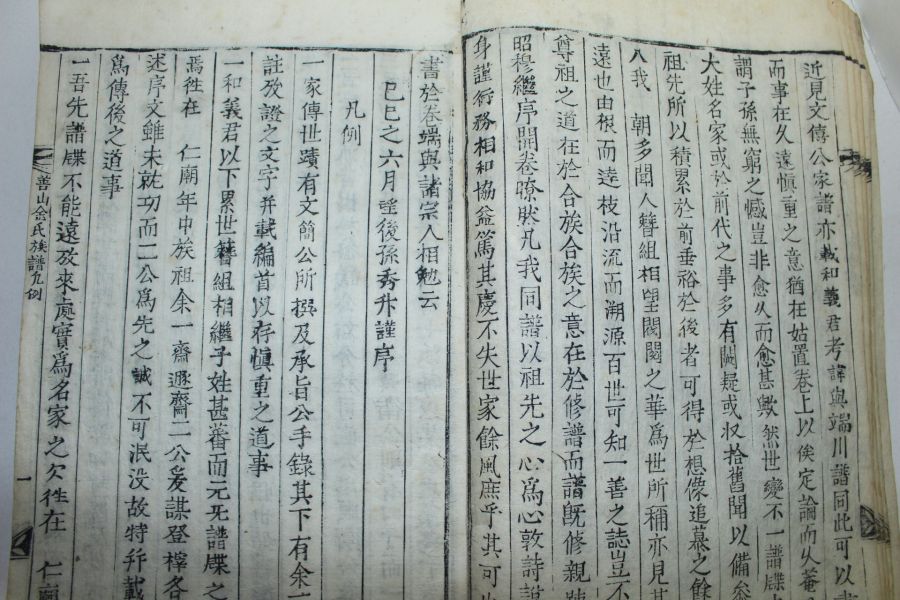 近見文傳公家諸亦載和義君考諱與端川譜同此可以
而事在久遠愼重之意猶在姑置卷上以俟定論而乆菴
謂子孫無窮之憾豈非愈久而愈甚歟然世變不一譜牒
大姓名家或於前代之事多有闕疑或収拾舊聞以備叅
祖先所以積累於前垂裕於後者可得於想像追慕之餘
入我 朝多聞人簪組相望閥閱之華爲世所稱亦見其
遠也由根而達枝沿流而溯源百世可知一善之誌豈不
尊祖之道在於合族合族之意在於修譜而譜旣修親
昭穆繼序開卷暸然凡我同譜以祖先之心爲心敦詩説
身謹行務相和協益篤其慶不失世家餘風庶乎其可
書於卷端與諸宗人相勉云
己巳之六月望後孫秀升謹序
凡例
一家傳世蹟有文簡公所撰及承旨公手錄其下有余一
註攷證之文字幷載編首以存愼重之道事
一和義君以下累世簪組相繼子姓甚蕃而元旡譜牒之
焉徃在 仁廟年中族祖余一齋遯齋二公爰謀登梓各
述序文雖未就功而二公爲先之誠不可泯没故特幷載
爲傳後之道事
一吾先譜牒不能遠攷來處實爲名家之欠徃在 仁廟
善山金氏族譜凡例
一